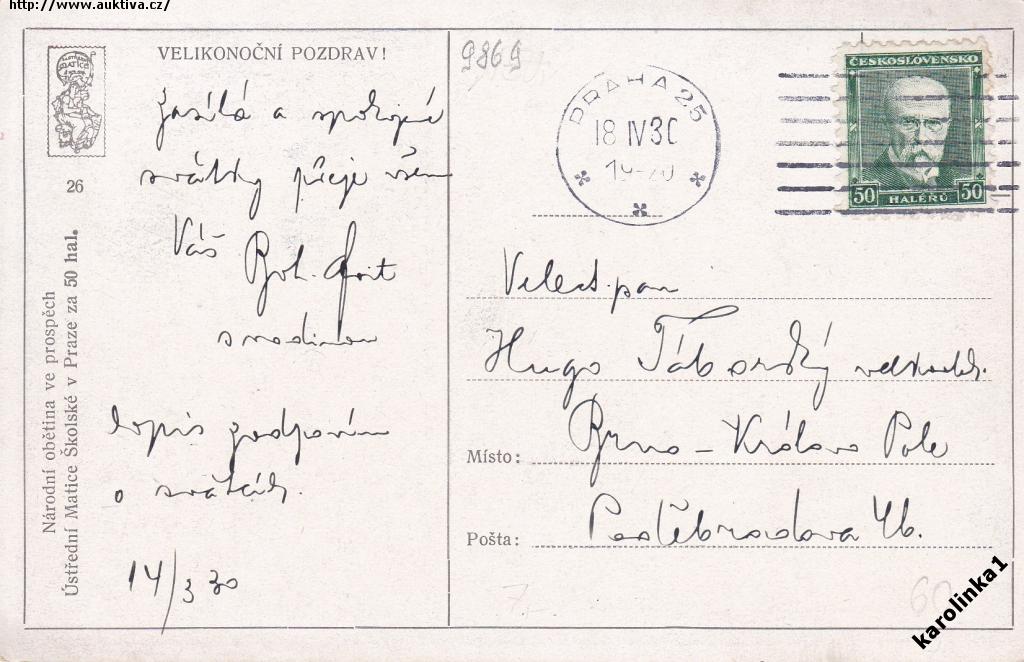 http://www.auktiva.cz/
VELIKONOČNÍ POZDRAV!
zasílá a spokojné
svátky přeje všem
Váš Boh.
s rodinou
Dopis zodpovím
o svátcích.
14/3 30
26
Národní obětina ve prospěch
Ústřední Matice Školské v Praze za 50 hal.
9869
PRAHA 25
18 IV 30
19-20
ČESKOSLOVENSKO
50 HALÉŘŮ 50
Velect. pan
Hugo Táborský velkoobch.
Místo: Brno - Královo Pole
Pošta: Poděbradova 4b.
7,-
60
karolinka1